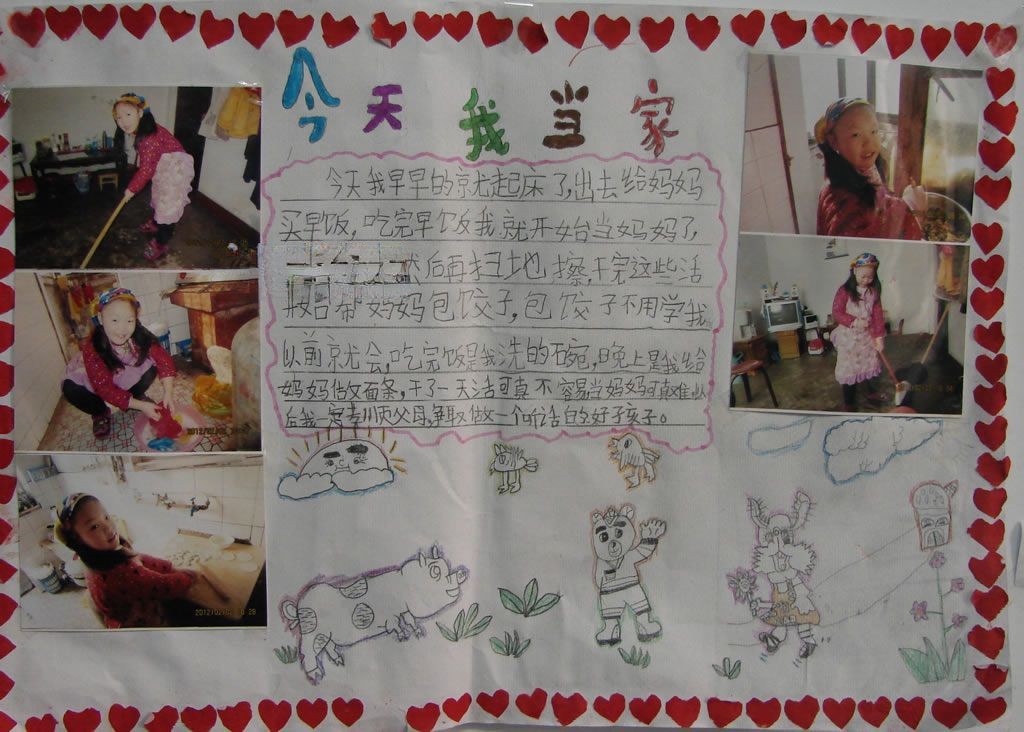 今天我当家
今天我早早的就起床了,出去给妈妈
买早饭,吃完早饭我就开始当妈妈了,
然后再扫地 擦,干完这些活
妈妈包饺子,包饺子不用学我
以前就会,吃完饭是我洗的碗,晚上是我给
妈妈做面条,干了一天活可真不容易当妈妈可真难
后我一定孝顺父母,争取做一个听话的好孩子。